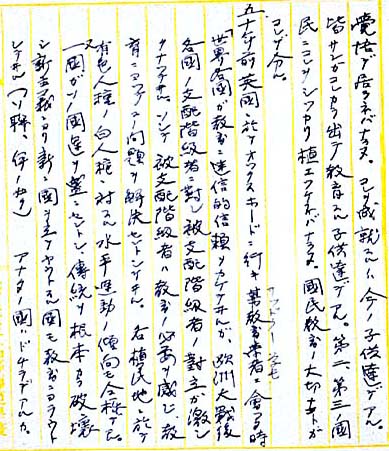 覚悟デ居ラネバナラヌ。コレヲ成就スルハ今ノ子供達デアル。
皆サンガコレカラ出テ教育スル子供達デアル。第二、第三ノ国
民ニコレヲシッカリ植エツケネバナラヌ。国民教育ノ大切ナコトガ
コレデ分ル。
五十年前英国ニ於テオックスホードニ行キ某教育者ニ会ウ時
「世界各国ガ教育ニ迷信的信頼ヲカケテイルガ、欧洲大戦後
各国ノ支配階級者ニ対シ被支配階級者ノ対立ガ激シ
クナッテイル。ソシテ被支配階級者ハ教育ノ必要ヲ感ジ、教
育ニヨッテコノ問題ヲ解決セントシテイル。各植民地ニ於テ
有色人種ノ白人種ニ対スル水平運動ノ傾向モ全権デアル。又
一国ガソノ国運ヲ盛ンニセントシ、傳統ヲ根本カラ破壊
シ新主義ニヨリ新シイ国ヲ立テヤウトスル国モ教育ニヨラウト
シテイル。(ソ聯、伊ノ如ク) アナタノ国ハドチラデアルカ。